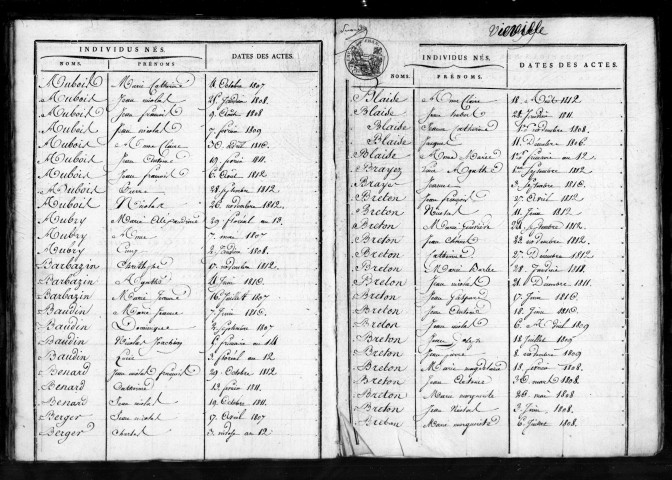 INDIVIDUS NÉS.
NOMS. PRÉNOMS DATES DES ACTES.
Auboit Marie Catherine 4 Octobre 1807
Auboit Jean nicolas 25 Janvier 1808
Auboit Jean françois 9 Août 1808
Auboit Jean nicolas 7 février 1809
Auboit Anne Claire 30 Août 1810
Auboit Jean Antoine 19 février 1811
Auboit Jean françois 6 Août 1812
Auboit Pierre 28 septembre 1812
Auboit Nicolas 26 novembre 1812
Aubry Marie Alexandrine 29 floréal an 13
Aubry Anne 7 mai 1807
Aubry 1808
Barbazin Christophe 17 novembre 1812
Barbazin Agathe 4 Juin 1810
Barbazin Marie Jeanne 16 Juillet 1807
Baudin Marie Jeanne 7 Juin 1810
Baudin Dominique septembre 1807
Baudin Nicolas Joachim primaire an 14
Baudin floréal an 12
Benard Jean nicolas françois 29 Octobre 1812
Benard Catherine 13 février 1811
Benard Jean nicolas 19 Octobre 1811
Berger Jean nicolas 17 Avril 1807
Berger Charles 3 nivôse an 12
Vierville
INDIVIDUS NÉS.
NOMS. PRÉNOMS. DATES DES ACTES.
Blaise Anne Claire 18 Août 1812
Blaise Jean 28 Janvier 1811
Blaise Catherine 1er novembre 1808
Blaise Jacques 11 Décembre 1806
Blaise Anne Marie an 12
Brayez Agathe 1er Septembre 1812
Braye Jeanne 3 Septembre 1810
Breton Jean françois 27 Avril 1812
Breton Nicolas 11 Juin 1812
Breton Marie 24 septembre 1812
Breton Jean 22 novembre 1812
Breton Catherine 27 Décembre 1812
Breton Marie Barbe 28 Janvier 1811
Breton Jean nicolas 21 Décembre 1811
Breton Jean 17 Juin 1810
Breton Jean Antoine 18 Juin 1810
Breton Jean nicolas 6 Avril 1809
Breton Jean 18 Juillet 1809
Breton Jean 8 novembre 1809
Breton Marie magdelaine 18 février 1808
Breton Jean Antoine 30 mars 1808
Breton Marie marguerite 26 mai 1808
Breton Jean Nicolas 3 Juin 1808
Breton Marie marguerite 6 Juillet 1808